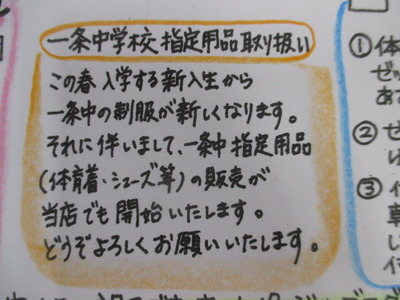 一条中学校 指定用品取り扱い
この春 入学する新入生から
一条中の制服が新しくなります。
それに伴いまして、一条中指定用品
(体育着・シューズ等)の販売が
当店でも開始いたします。
どうぞよろしくお願いいたします。
① 体
ゼッ
あて
② ゼ
③